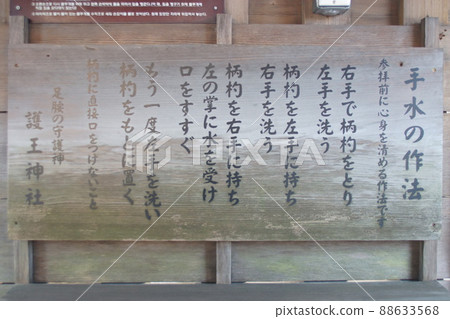 手水の作法
参拝前に心身を清める作法です
右手で柄杓をとり
左手を洗う
柄杓を左手に持ち
右手を洗う
柄杓を右手に持ち
左の掌に水を受け
口をすすぐ
もう一度左手を洗い
柄杓をもとに置く
柄杓に直接口をつけないこと
足腰の守護神
護王神社
PIXTA
88633568